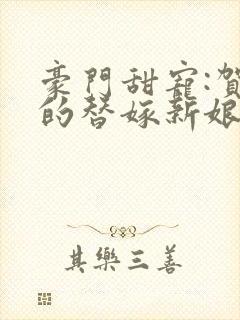 豪門甜寵:賀
的替嫁新娘
其樂三善